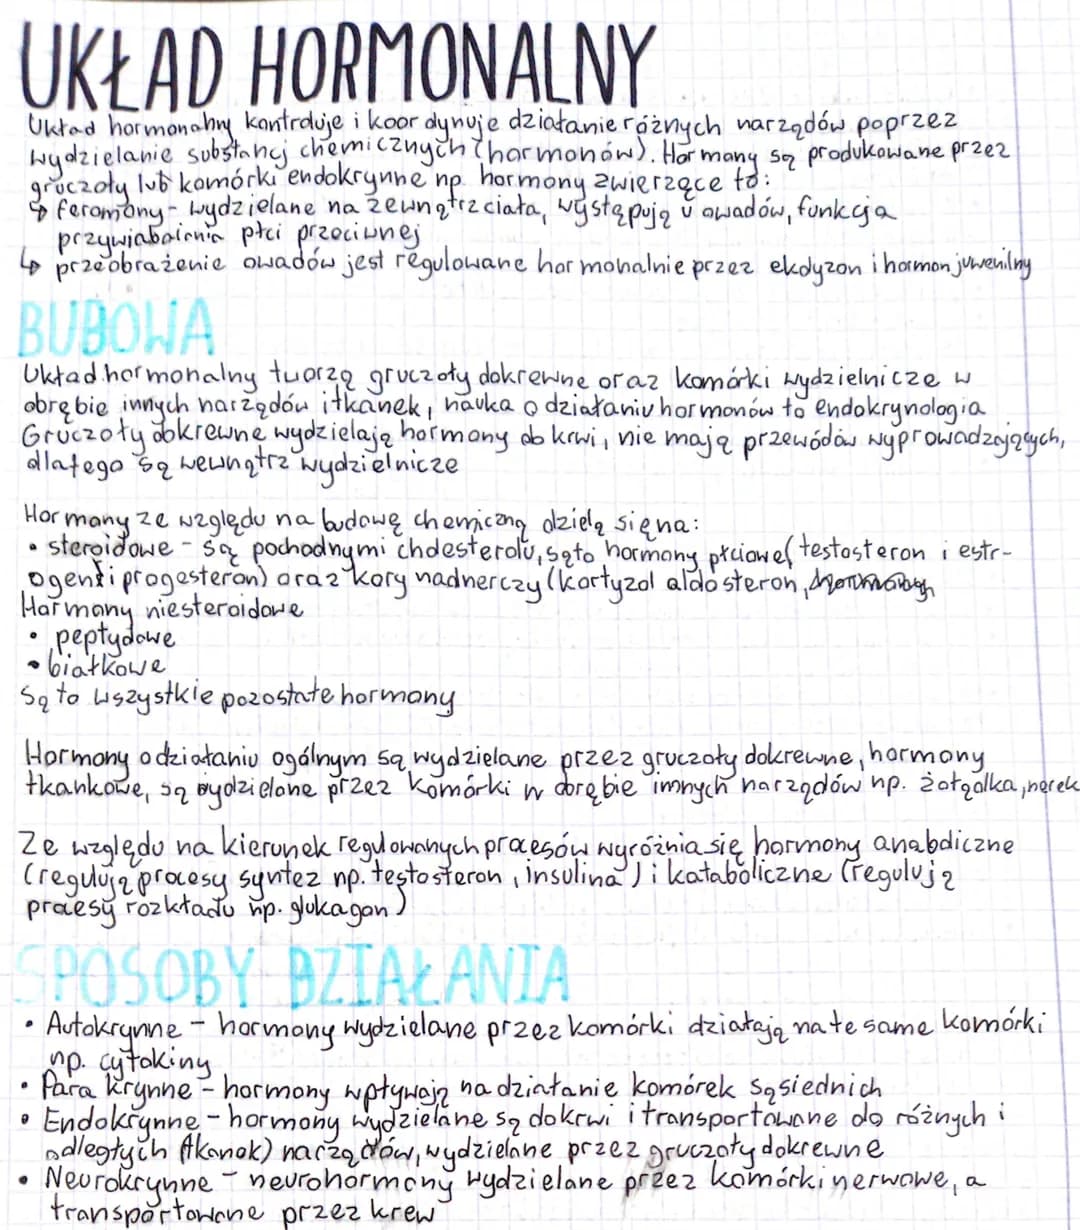 UKŁAD HORMONALNY
Układ hormonalny kontroluje i koordynuje działanie różnych narządów poprzez
wydzielanie substancj chemicznych (hormonów). Hormony są produkowane przez
gruczoły lub komórki endokrynne np. hormony zwierzęce to:
↳ feromony - wydzielane na zewnątrz ciała, występują u owadów, funkcja
przywiabainia płci przeciwnej
↳ przeobrażenie owadów jest regulowane hormonalnie przez ekdyzon i hormon juwenilny
BUDOWA
Układ hormonalny tworzą gruczoły dokrewne oraz komórki wydzielnicze w
obrębie innych narządów i tkanek, nauka o działaniu hormonów to endokrynologia
Gruczoły dokrewne wydzielają hormony do krwi, nie mają przewodów wyprowadzających,
dlatego są wewnątrz wydzielnicze
Hormony ze względu na budowę chemiczną dzielą się na:
• steroidowe - są pochodnymi cholesterolu, są to hormony płciowe (testosteron i estr-
ogeny i progesteron) oraz kory nadnerczy (kortyzol aldosteron,
Hormony niesteroidowe
• peptydowe
• białkowe
Są to wszystkie pozostałe hormony
Hormony o działaniu ogólnym są wydzielane przez gruczoły dokrewne, hormony
tkankowe, są wydzielone przez komórki w obrębie innych narządów np. żołądka, nerek
Ze względu na kierunek regulowanych procesów wyróżnia się hormony anaboliczne
(regulują procesy syntez np. testosteron, insulina) i kataboliczne (regulują
procesy rozkładu np. glukagon)
SPOSOBY DZIAŁANIA
• Autokrynne - hormony wydzielane przez komórki działają na te same komórki
np. cytokiny
• Parakrynne - hormony wpływają na działanie komórek sąsiednich
• Endokrynne - hormony wydzielane są do krwi i transportowane do różnych i
odległych (tkanek) narządów, wydzielane przez gruczoły dokrewne
• Neurokrynne - neurohormony wydzielane przez komórki nerwowe, a
transportowane przez krew